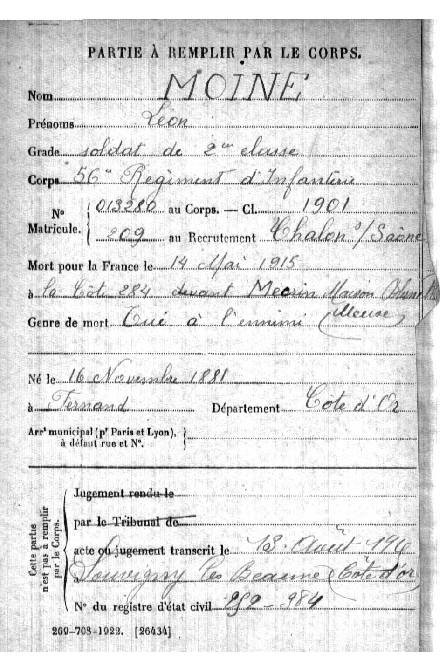 PARTIE À REMPLIR PAR LE CORPS.
Nom MOINE
Prénoms Léon
Grade soldat de 2me classe
Corps 56e Régiment d'Infanterie
No Matricule. 013280 au Corps. — Cl. 1901
209 au Recrutement Chalon s/Saône
Mort pour la France le 14 Mai 1915
à la Côt 284 devant Mecrin Maison
Genre de mort Tué à l'ennimi (Meuse)
Né le 16 Novembre 1881
à Fernand Département Cote d'Or
Arrt municipal (pr Paris et Lyon),
à défaut rue et No.
Cette partie n'est pas à remplir par le Corps.
Jugement rendu le
par le Tribunal de
acte ou jugement transcrit le 18 Août
Savigny les Beaune (Côte d'or)
No du registre d'état civil
269-708-1922. [26434]